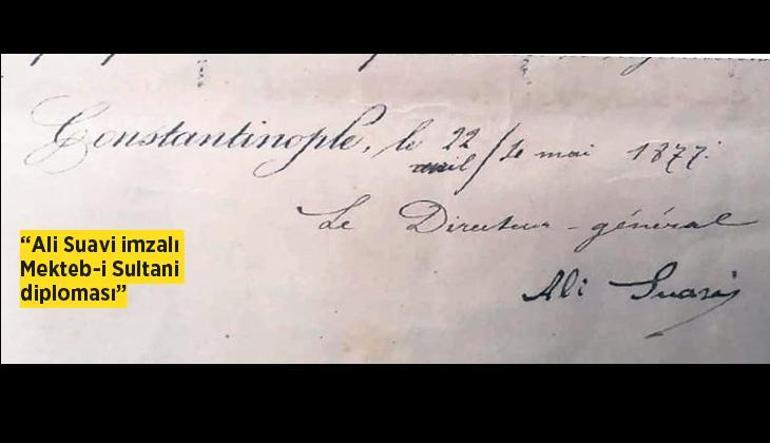 Constantinople, le 22 avril/4 mai 1877.
Le Directeur-général
Ali Suavi
“Ali Suavi imzalı
Mekteb-i Sultani
diploması”